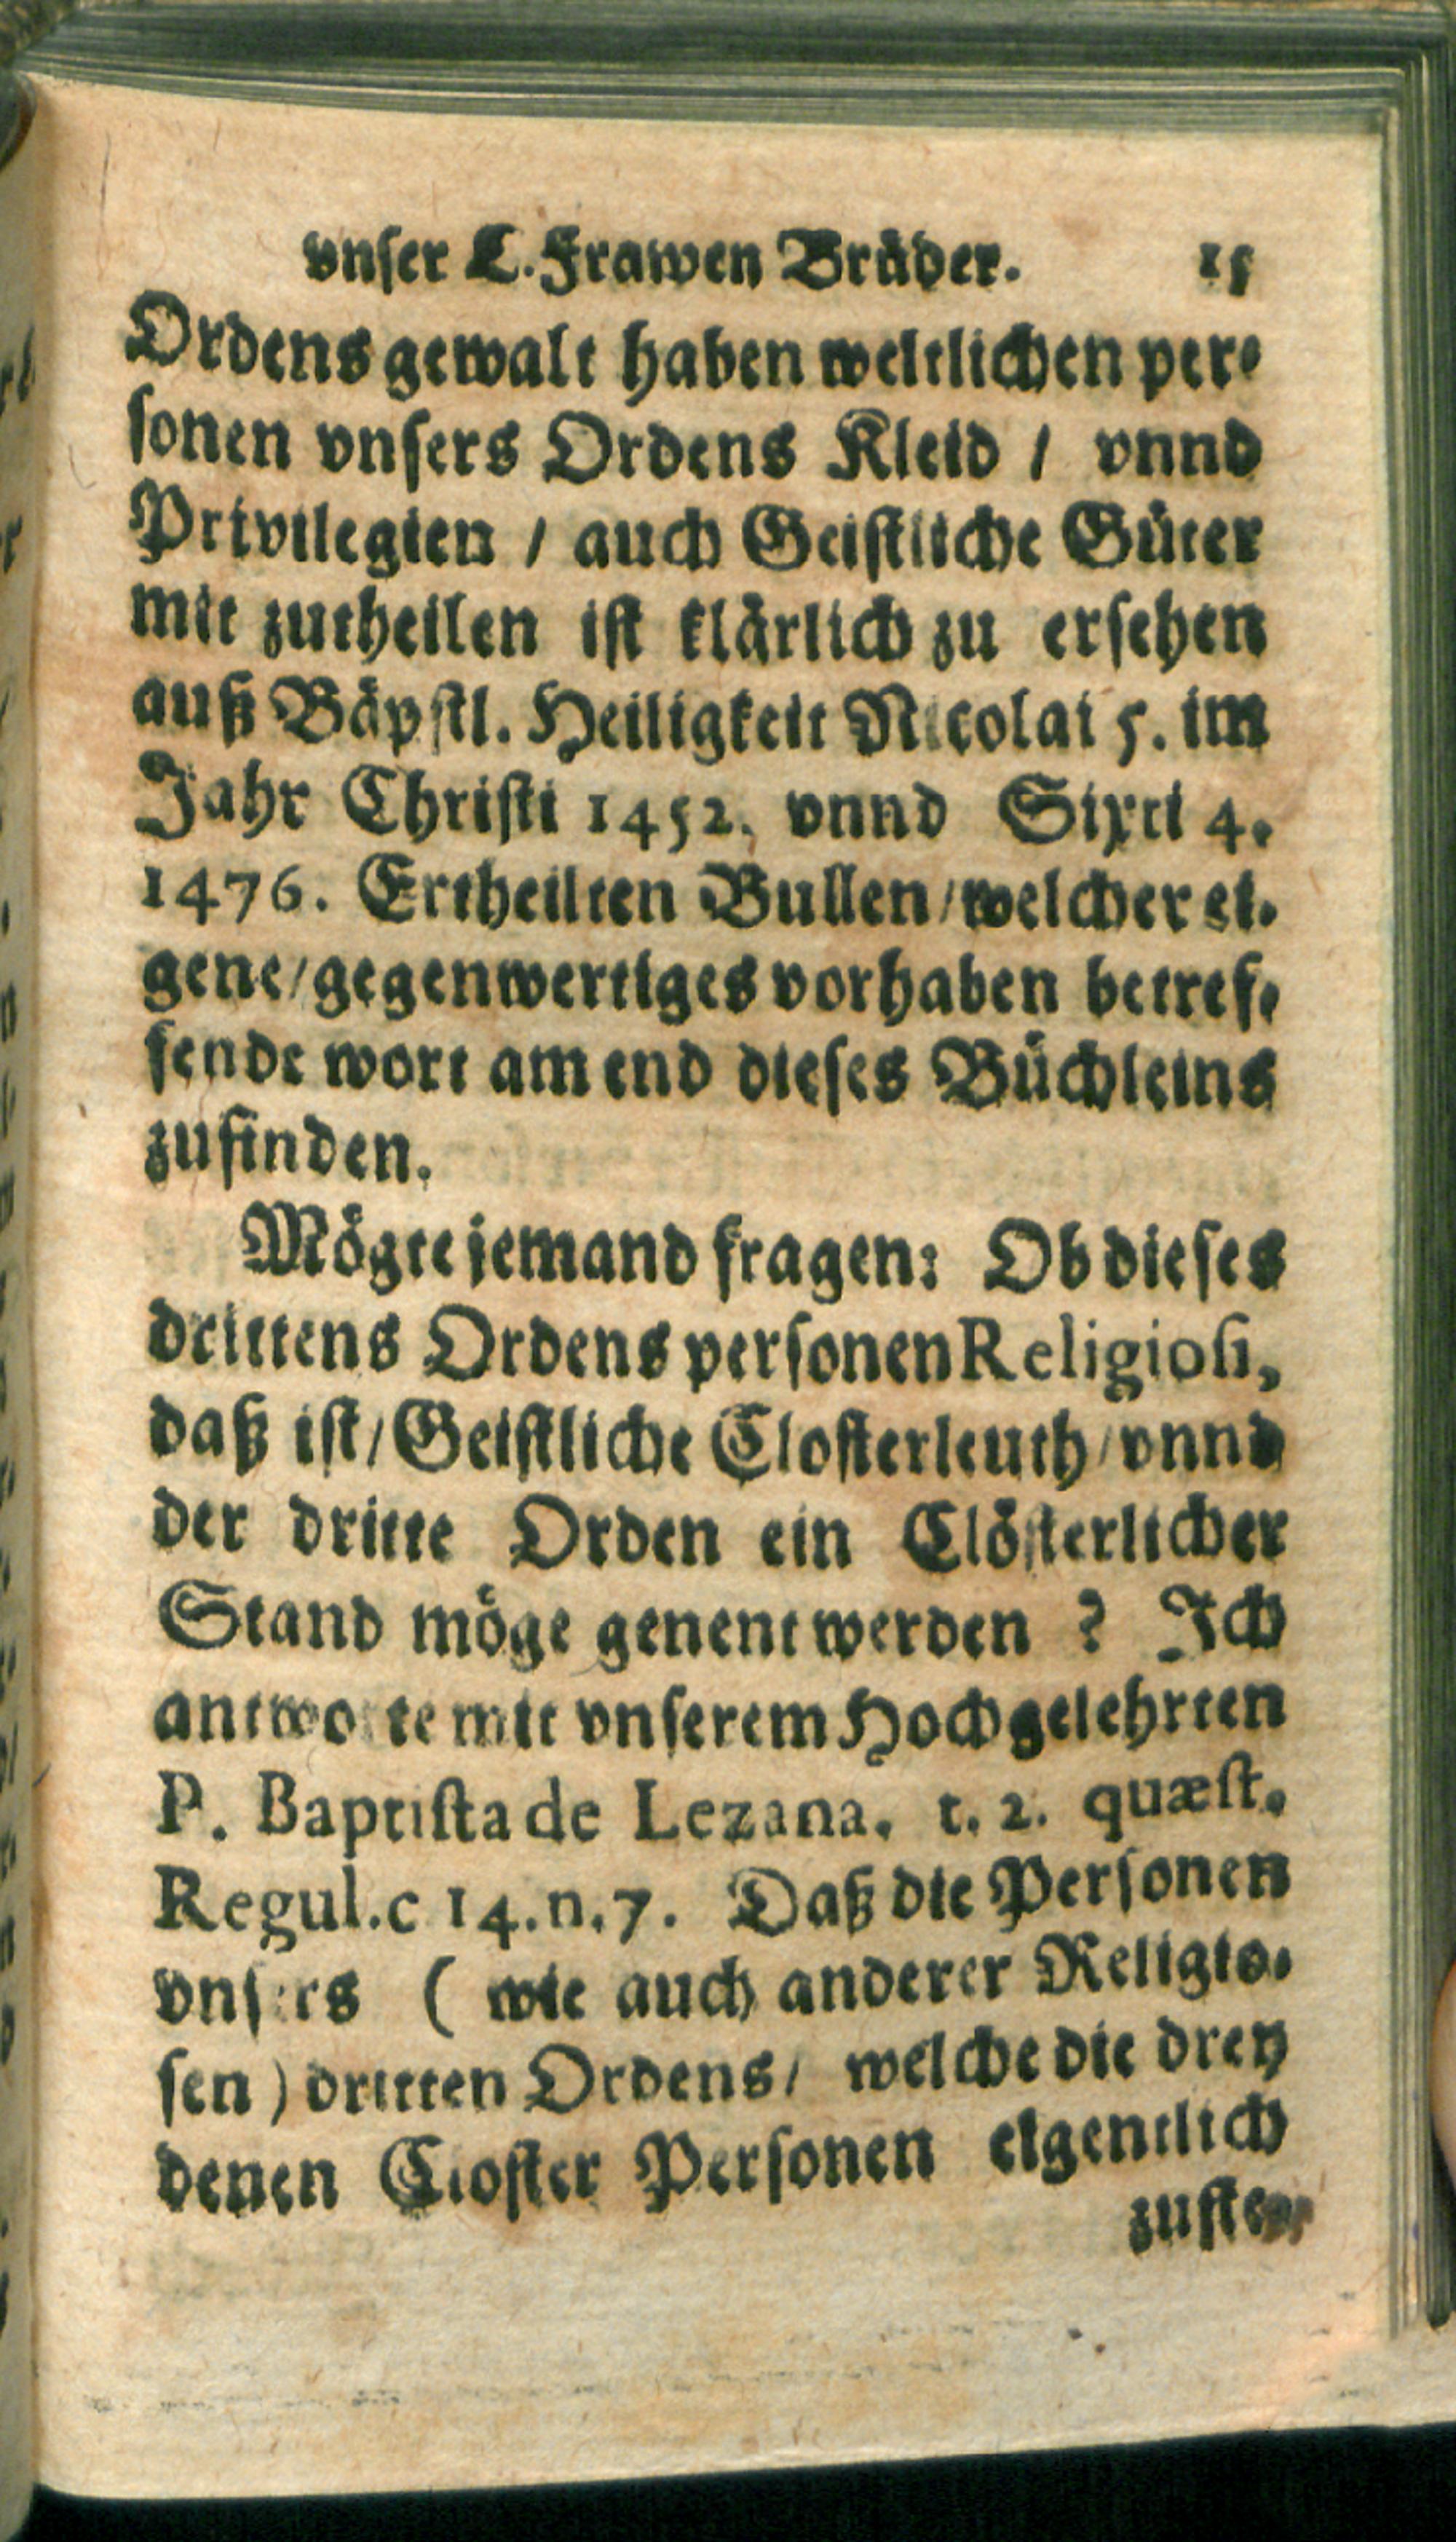 vnſer L. Frawen Brüder. 15
Ordens gewalt haben weltlichen per-
ſonen vnſers Ordens Kleid / vnnd
Privilegien / auch Geiſtliche Güter
mit zutheilen iſt klärlich zu erſehen
auß Bäpſtl. Heiligkeit Nicolai 5. im
Jahr Chriſti 1452. vnnd Sixti 4.
1476. Ertheilten Bullen / welcher ei-
gene / gegenwertiges vorhaben betref-
fende wort am end dieſes Büchleins
zufinden.
Mögte jemand fragen: Ob dieſes
drittens Ordens perſonen Religioſi,
daß iſt / Geiſtliche Cloſterleuth / vnnd
der dritte Orden ein Clöſterlicher
Stand möge genent werden ? Ich
antworte mit vnſerem Hochgelehrten
P. Baptiſta de Lezana. t. 2. quæſt.
Regul. c 14. n. 7. Daß die Perſonen
vnſers ( wie auch anderer Religio-
ſen ) dritten Ordens / welche die drey
denen Cloſter Perſonen eigentlich